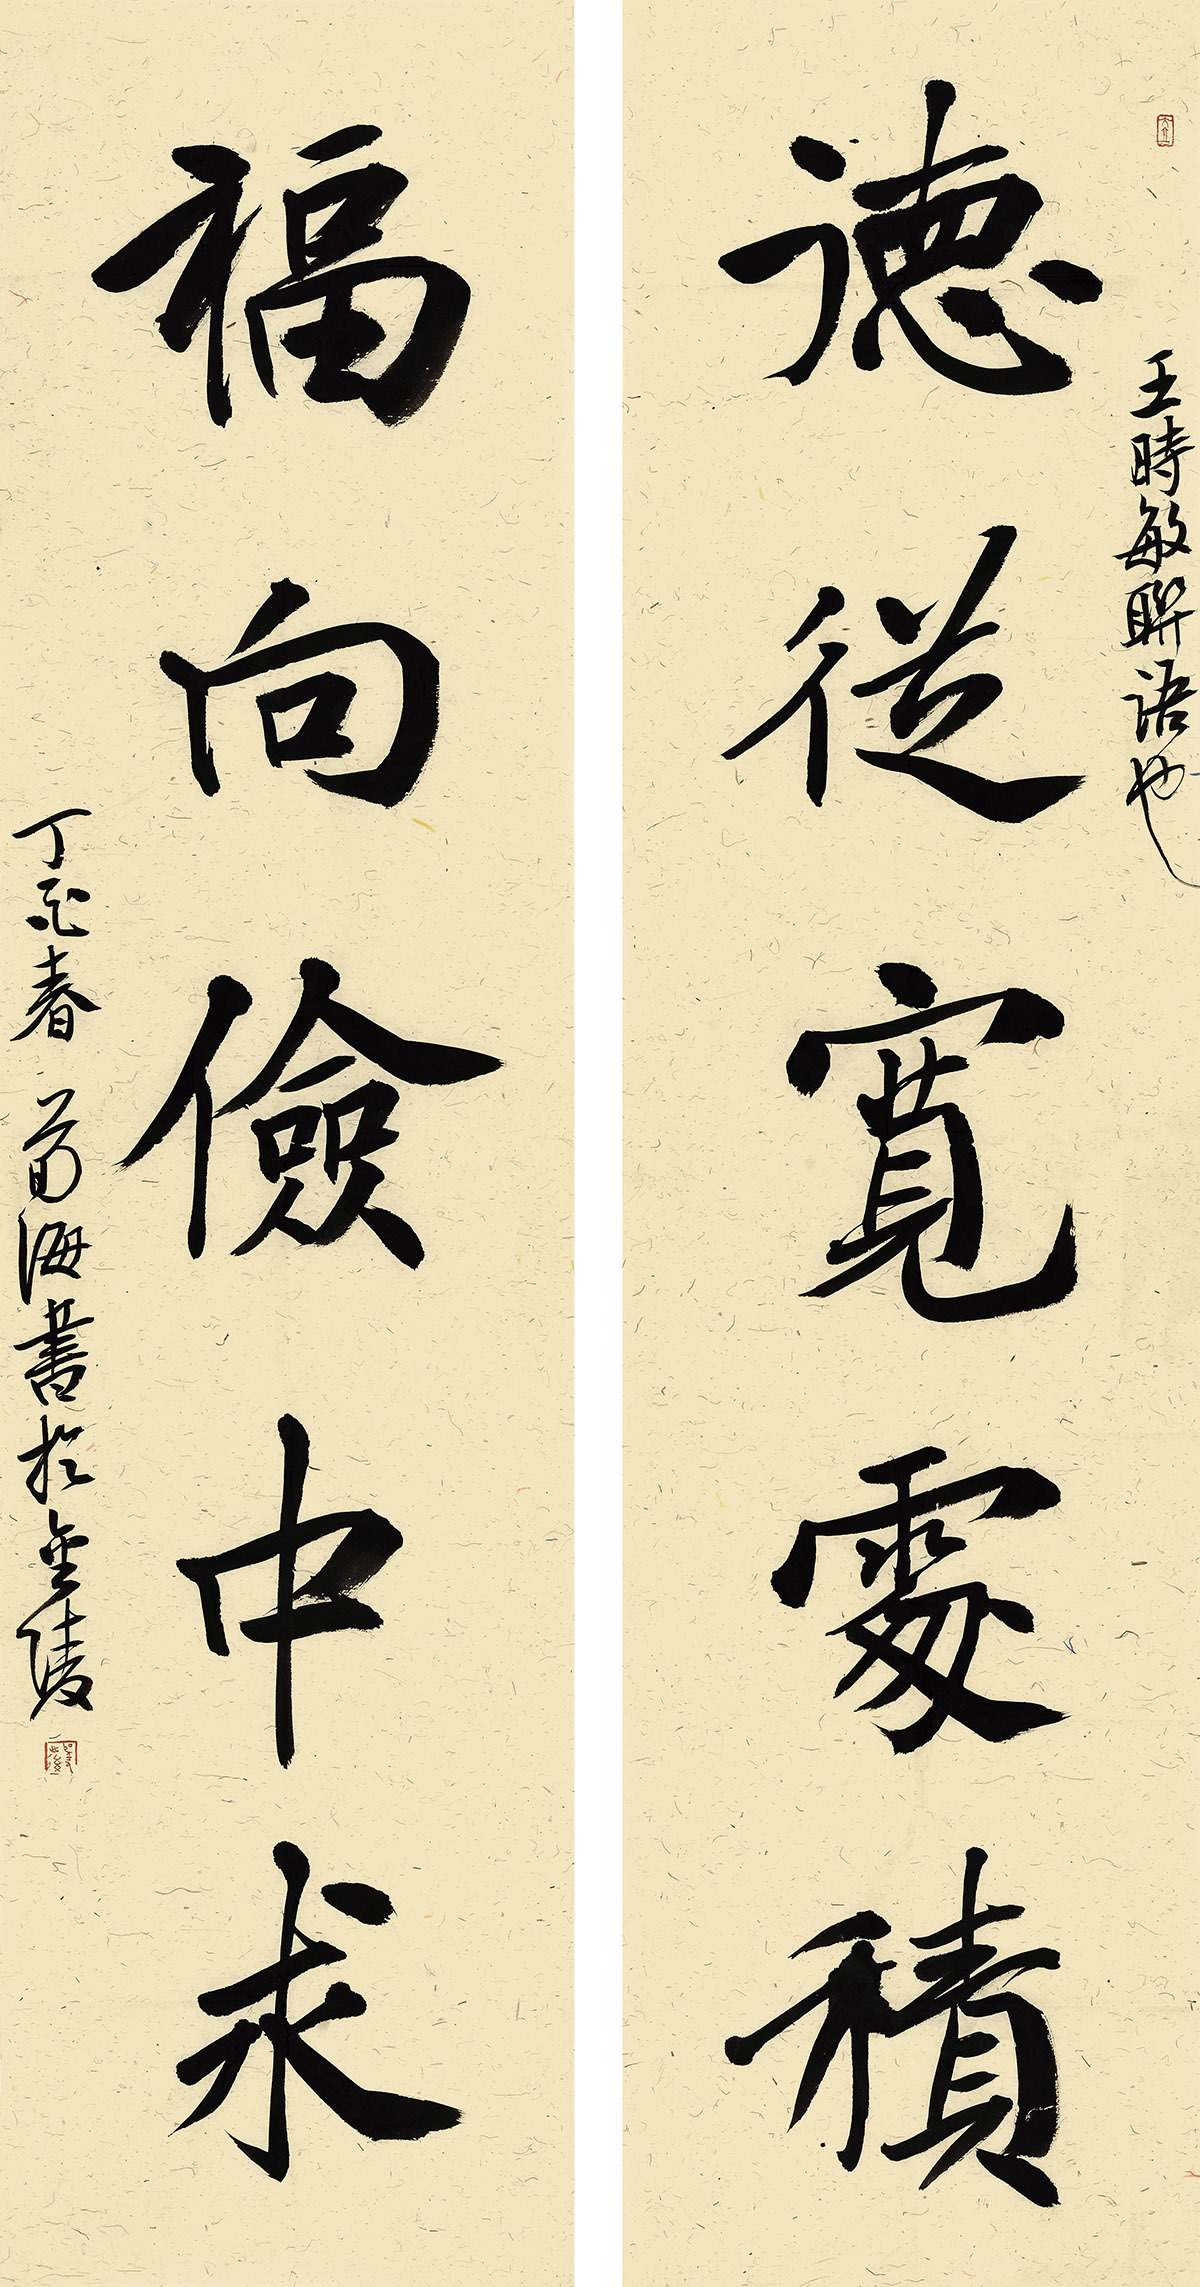 德從寬處積
王時敏聯語也
福向儉中求
丁酉春荀海書於金陵